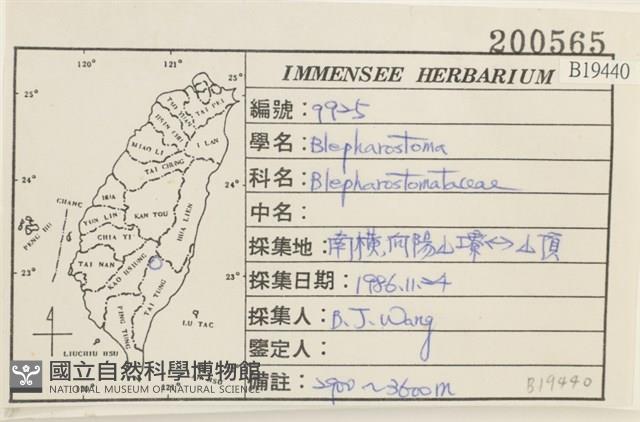 200565
IMMENSEE HERBARIUM
B19440
編號：9925
學名：Blepharostoma
科名：Blepharostomataceae
中名：
採集地：南橫,向陽山瑻<->山頂
採集日期：1986.11.24
採集人：B. J. Wang
鑒定人：
備註：2900~3600m
B19440
120° 121°
25° 25°
TAI PEI
I LAN
MIAO LI
TAI CHUNG
24° 24°
HUA LIEN
NAN TOU
YUN LIN
CHIA YI
CHANG
HUA
PENG HU
TAI NAN
KAO HSIUNG
23° 23°
TAI TUNG
PING TUNG
LU TAO
LIUCHIU HSU
國立自然科學博物館
NATIONAL MUSEUM OF NATURAL SCIENCE